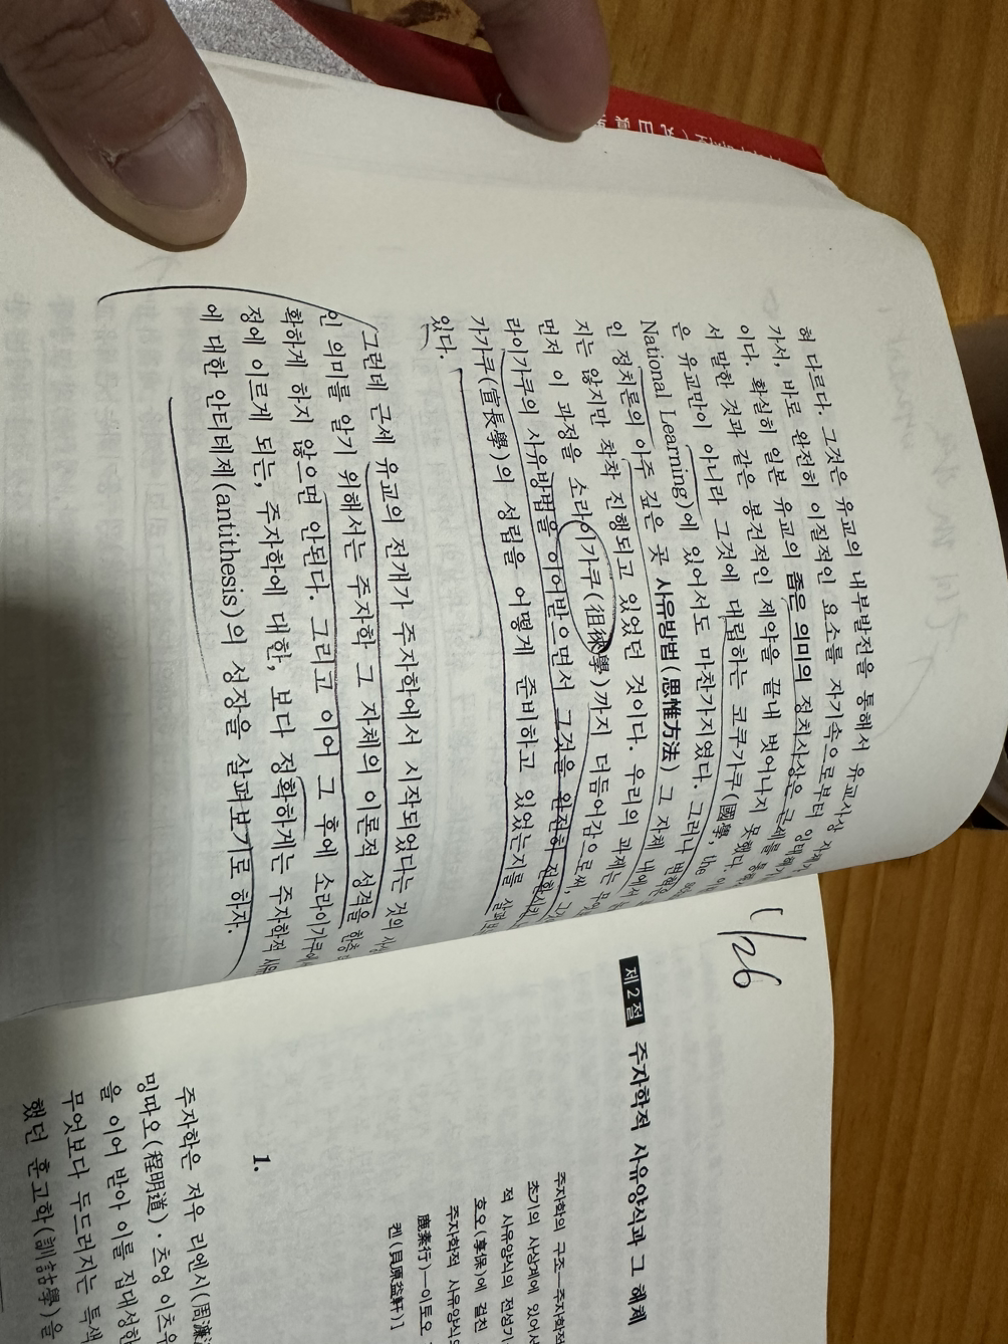 혀 다르다. 그것은 유교의 내부발전을 통해서 유교사상 자체가
가서, 바로 완전히 이질적인 요소를 자기속으로부터
이다. 확실히 일본 유교의 좁은 의미의 정치사상은 근세를
서 말한 것과 같은 봉건적인 제약을 끝내 벗어나지 못했다.
은 유교만이 아니라 그것에 대립하는 코쿠가쿠(國學, the
National Learning)에 있어서도 마찬가지였다. 그러나 변화은
인 정치론의 아주 깊은 곳 사유방법(思惟方法) 그 자체 내에서
지는 않지만 착착 진행되고 있었던 것이다. 우리의 과제는
먼저 이 과정을 소라이가쿠(徂徠學)까지 더듬어감으로써,
라이가쿠의 사유방법을 이어받으면서 그것을 완전히 전환시킨
가가쿠(宣長學)의 성립을 어떻게 준비하고 있었는지를
있다.
그런데 근세 유교의 전개가 주자학에서 시작되었다는 것의
인 의미를 알기 위해서는 주자학 그 자체의 이론적 성격을 한층
확하게 하지 않으면 안된다. 그리고 이어 그 후에 소라이가쿠에서
정에 이르게 되는, 주자학에 대한, 보다 정확하게는 주자학적
에 대한 안티테제(antithesis)의 성장을 살펴보기로 하자.
1/26
제2절 주자학적 사유양식과 그 해체
주자학의 구조—주자학적
초기의 사상계에 있어서
적 사유양식의 전성기
호오(享保)에 걸친
주자학적 사유양식의
鹿素行)—이토오
켄(貝原益軒)]
1.
주자학은 저우 리엔시(周濂
밍따오(程明道)·츠엉 이츠우
을 이어 받아 이를 집대성한
무엇보다 두드러지는 특색
했던 훈고학(訓詁學)을